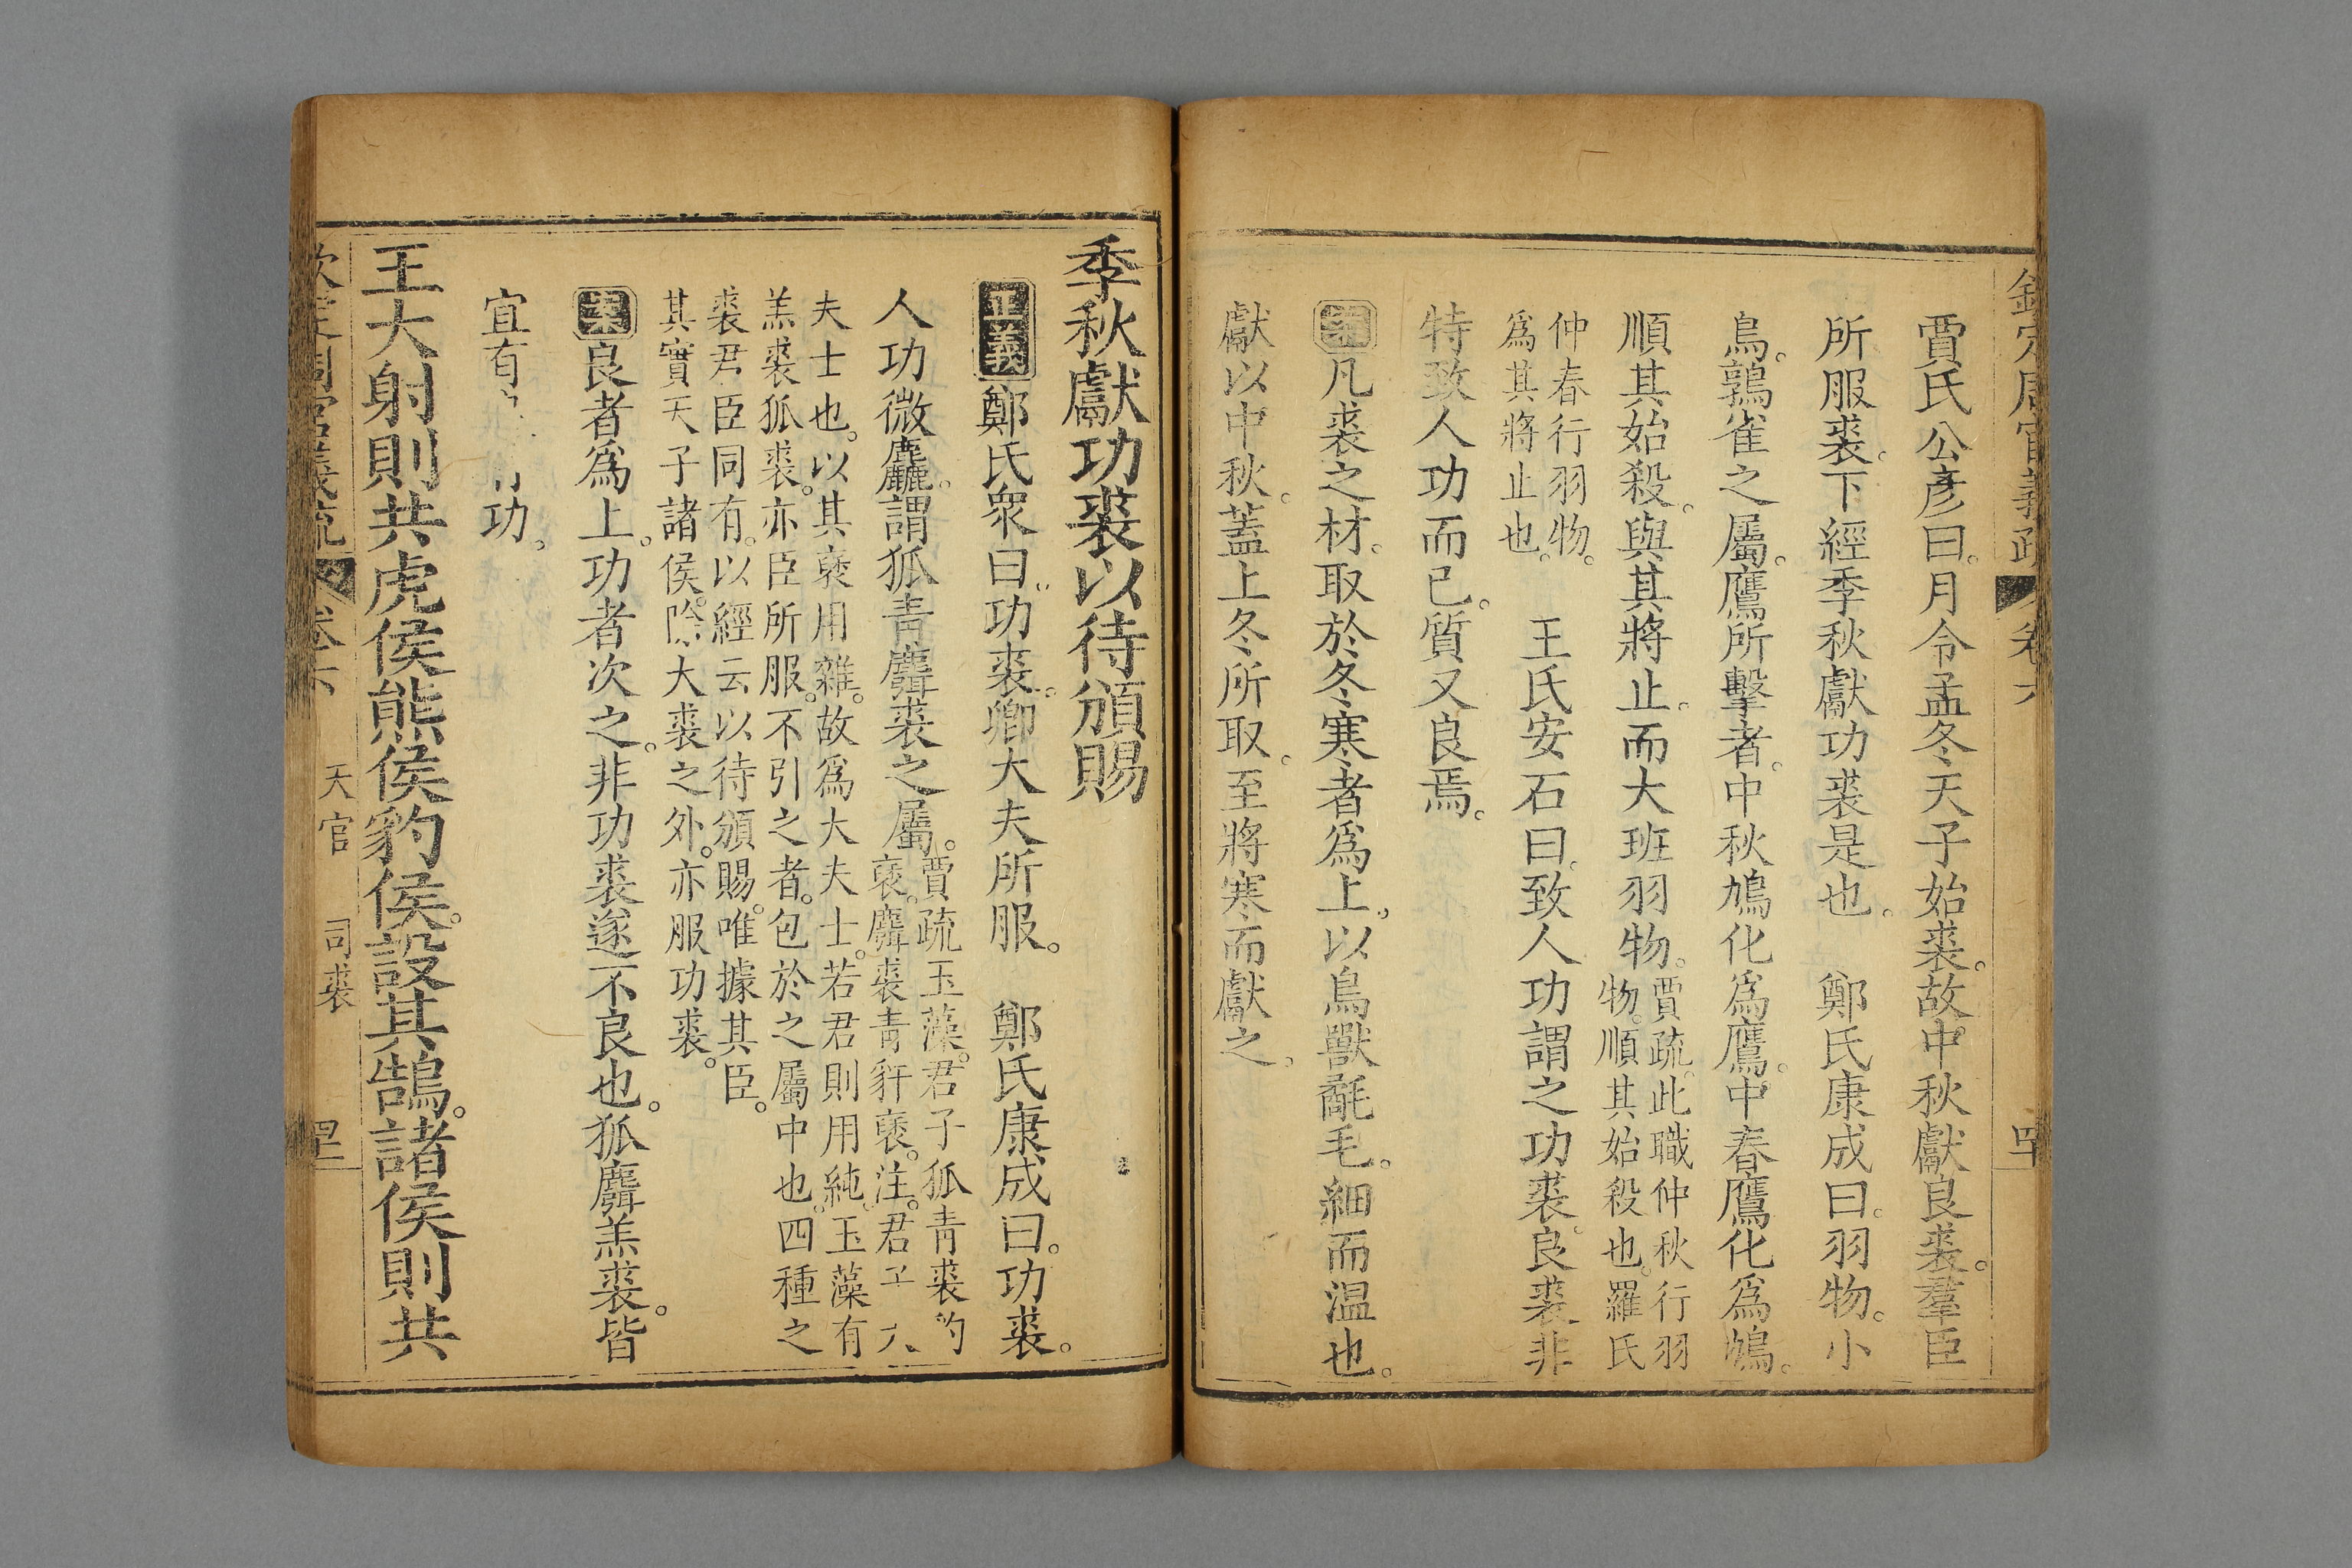 欽定周官義疏 卷六
賈氏公彥曰。月令孟冬天子始裘。故中秋獻良裘。羣臣
所服裘。下經季秋獻功裘是也。 鄭氏康成曰。羽物。小
鳥。鶉雀之屬。鷹所擊者。中秋鳩化爲鷹。中春鷹化爲鳩。
順其始殺。與其將止。而大班羽物。
賈疏。此職仲秋行羽
物。順其始殺也。羅氏
仲春行羽物。
爲其將止也。
王氏安石曰。致人功謂之功裘。良裘非
特致人功而已。質又良焉。
案凡裘之材。取於冬寒者爲上。以鳥獸氄毛。細而温也。
獻以中秋。蓋上冬所取。至將寒而獻之。
季秋獻功裘以待頒賜
正義鄭氏衆曰。功裘。卿大夫所服。 鄭氏康成曰。功裘。
人功微麤。謂狐青麛裘之屬。
賈疏玉藻。君子狐青裘豹
褎。麛裘青豻褎。注。君子大
夫士也。以其褎用雜。故爲大夫士。若君則用純。玉藻有
羔裘狐裘。亦臣所服。不引之者。包於之屬中也。四種之
裘君臣同有。以經云以待頒賜。唯據其臣。
其實天子諸侯。除大裘之外。亦服功裘。
案良者爲上。功者次之。非功裘遂不良也。狐麛羔裘。皆
宜有 功。
王大射則共虎侯熊侯豹侯。設其鵠。諸侯則共
欽定周官義疏 卷六 天官 司裘